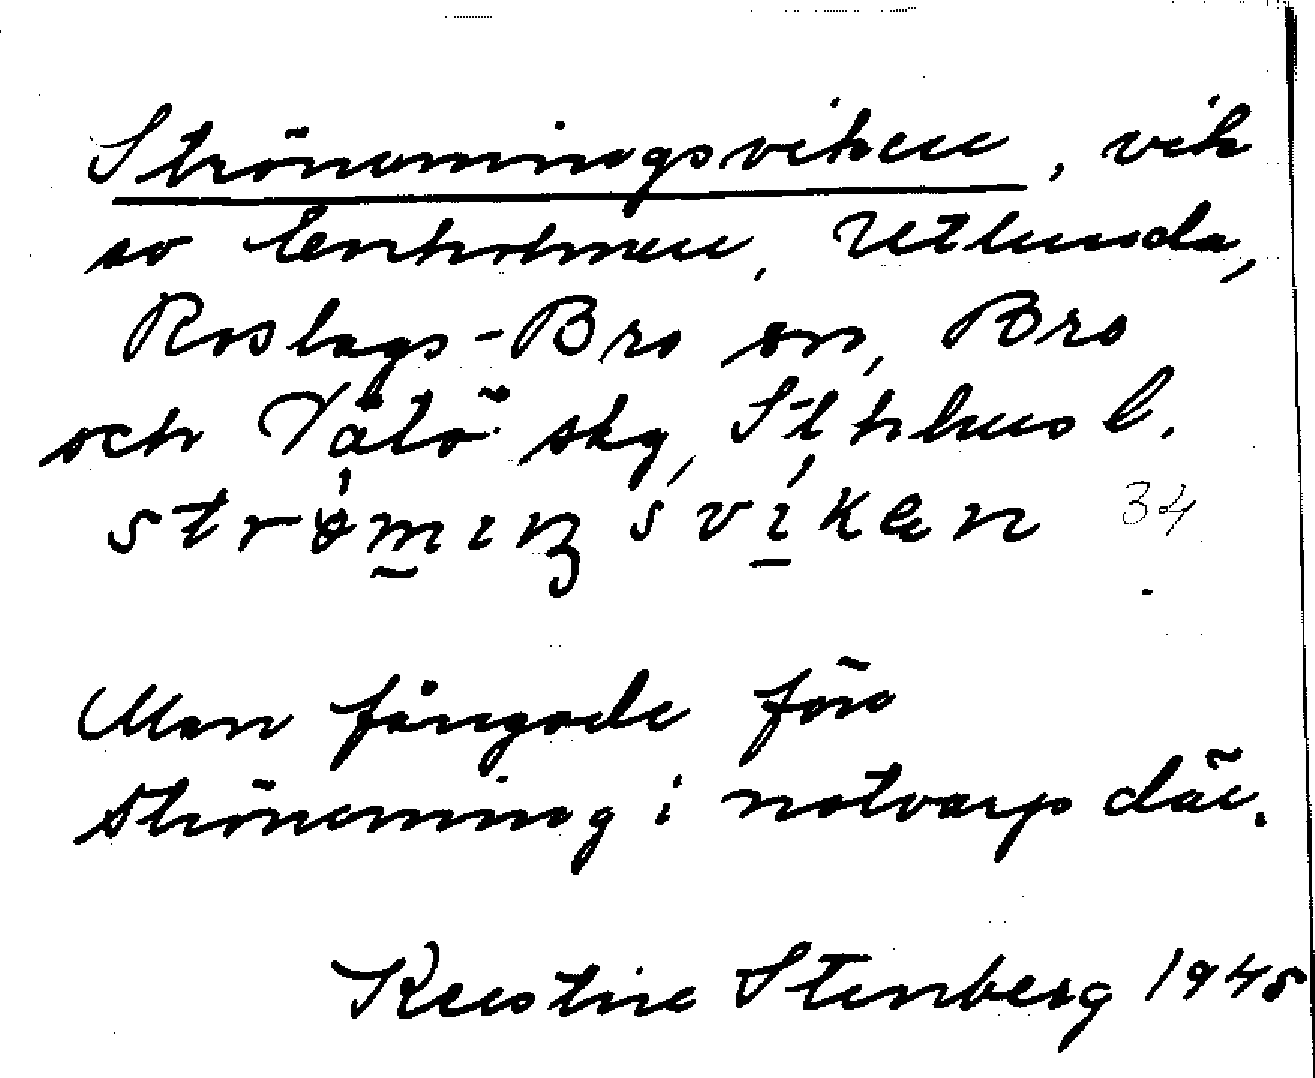 Strömmingsviken, vik
so Enholmen, Utlunda,
Roslags-Bro sn, Bro
och Vätö skg, Sthlms l.
strømıŋsvıkæn 34
Man fångade förr
strömming i notvarp där.
Kerstin Stenberg 1948